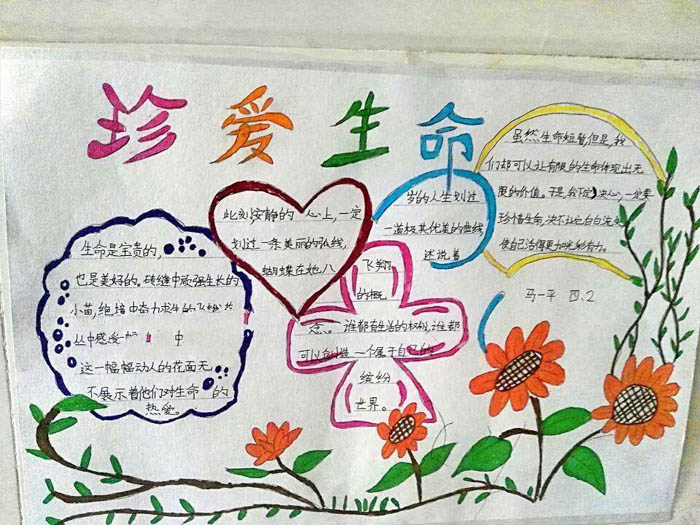 珍爱生命
生命是宝贵的,
也是美好的。砖缝中顽强生长的
小苗,绝境中奋力求生的飞蛾
丛中感受
中
这一幅幅动人的花面无
不展示着他们对生命的
热爱。
此刻,安静的 心上,一定
划过一条美丽的弘线,
蝴蝶在她八
岁的人生划过
一道极其优美的曲线
述说着
飞翔
的概
念。谁都有生活的权利,谁都
可以创造一个属于自己的
缤纷
世界。
虽然生命短暂,但是,我
们却可以让有限的生命体现出无
限的价值。于是,我下定决心,一定要
珍惜生命,决不让它白白流失
使自己活得更加光彩有力。
马一平 四.2